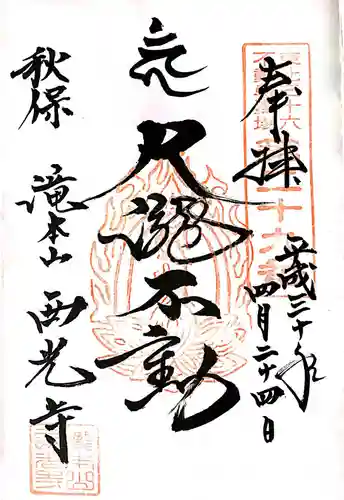 奉拝
平成三十年
四月二十四日
大瀧不動
秋保
滝本山
西光寺